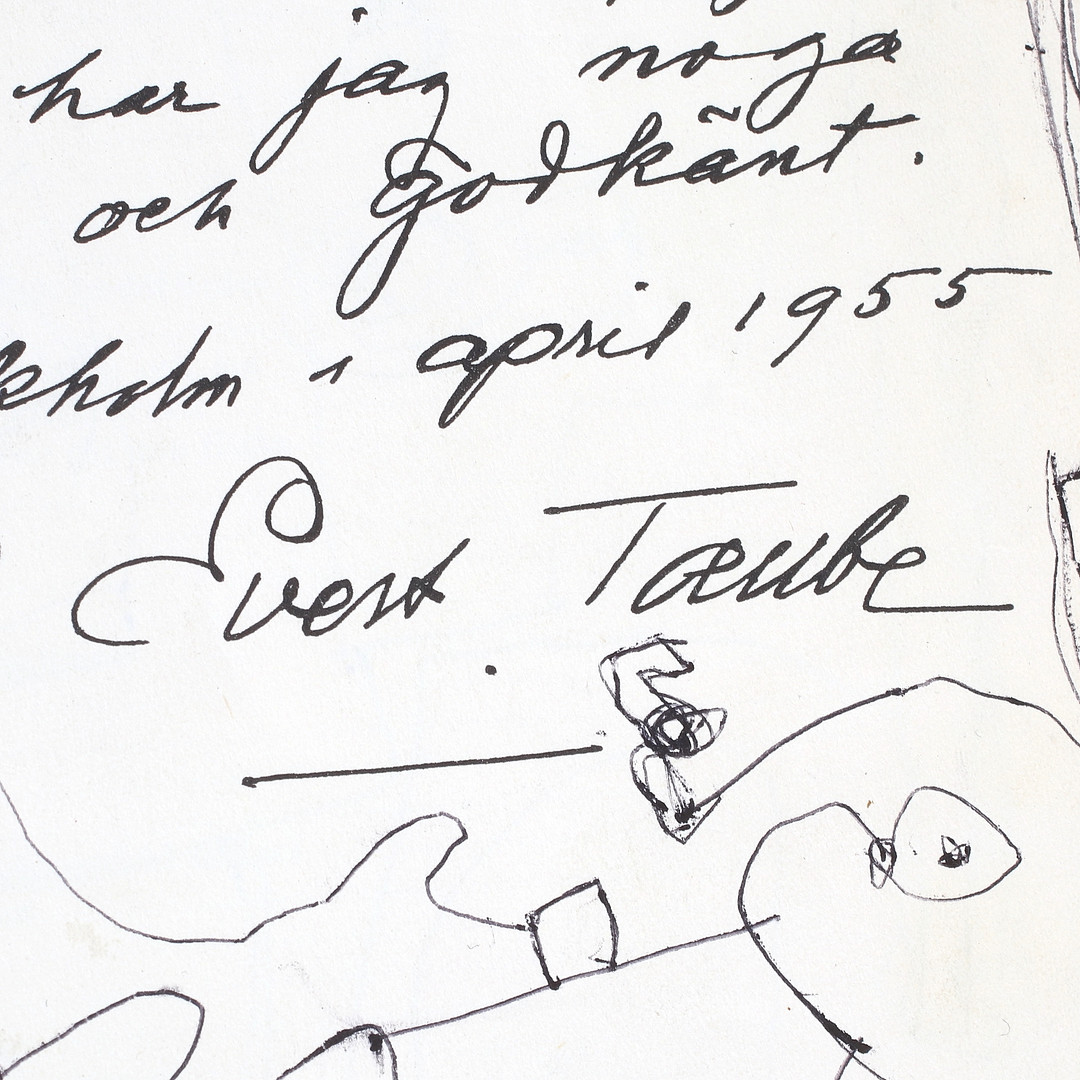 har jag noga
och godkänt.
kholm i april 1955
Evert Taube